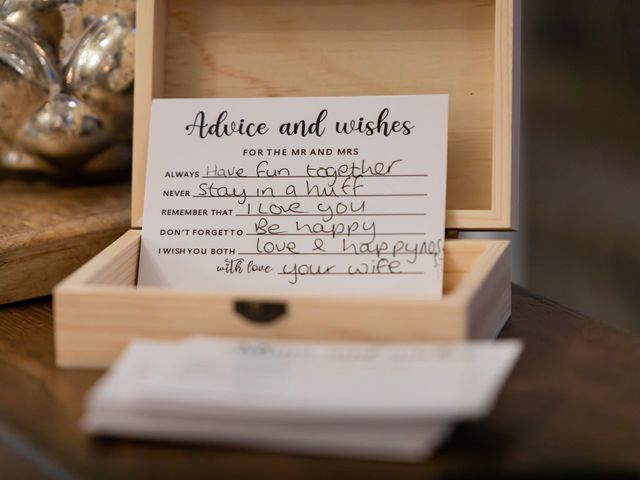 Advice and wishes
FOR THE MR AND MRS
ALWAYS Have fun together
NEVER Stay in a huff
REMEMBER THAT I Love you
DON'T FORGET TO Be happy
I WISH YOU BOTH love & happyness
with love your wife